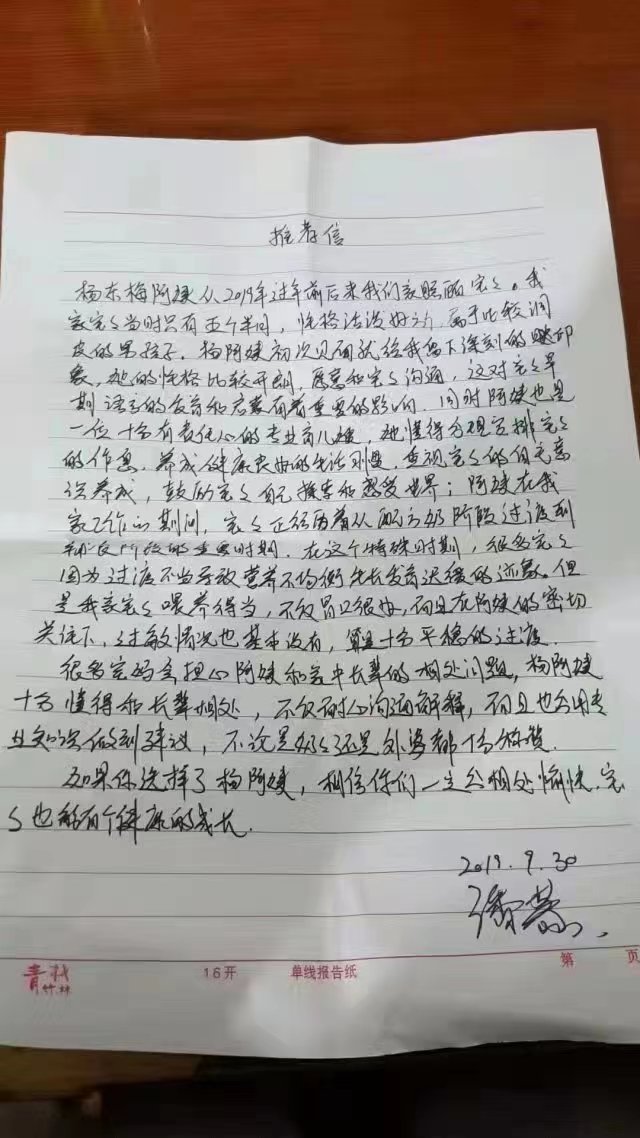 推荐信
杨东梅阿姨从2019年过年前后来我们家照顾宝宝。我
家宝宝当时只有五个半月，性格活泼好动，属于比较调
皮的男孩子．杨阿姨初次见面就给我留下深刻的印
象，她的性格比较开朗，愿意和宝宝沟通，这对宝宝早
期语言的发育和启蒙有着重要的影响．同时阿姨也是
一位十分有责任心的专业育儿嫂，她懂得合理安排宝宝
的作息，养成健康良好的生活习惯，重视宝宝的自主意
识养成，鼓励宝宝自己探索和感受世界；阿姨在我
家工作的期间，宝宝正经历着从配方奶阶段过渡到
辅食阶段的重要时期．在这个特殊时期，很多宝宝
因为过渡不当导致营养不均衡生长发育迟缓的迹象。但
是我家宝宝喂养得当，不仅胃口很好，而且在阿姨的密切
关注下，过敏情况也基本没有，算是十分平稳的过渡．
很多宝妈会担心阿姨和家中长辈的相处问题，杨阿姨
十分懂得和长辈相处，不仅耐心沟通解释，而且也会用专
业知识做到建议，不论是奶奶还是外婆都十分称赞．
如果你选择了杨阿姨，相信你们一定会相处愉快．宝
宝也能有个健康的成长．
2019.9.30
青竹林
16开 单线报告纸 第 页